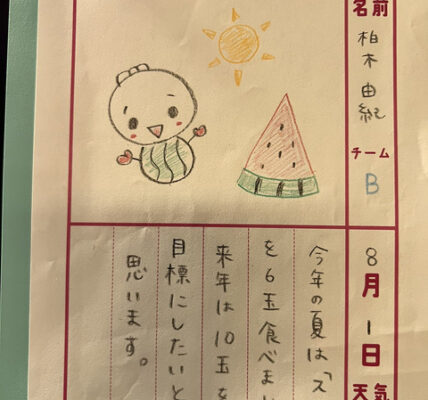 名前
柏木由紀
チーム
B
8月1日
天気
今年の夏は、「ス
を6玉食べまし
来年は10玉を
目標にしたいと
思います。